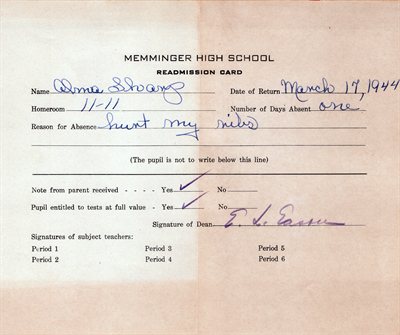 MEMMINGER HIGH SCHOOL
READMISSION CARD
Name Alma Date of Return March 17, 1944
Homeroom 11-11 Number of Days Absent one
Reason for Absence hurt my ribs
(The pupil is not to write below this line)
Note from parent received - - - - Yes ✓ No
Pupil entitled to tests at full value - Yes ✓ No
Signature of Dean E. L.
Signatures of subject teachers:
Period 1 Period 3 Period 5
Period 2 Period 4 Period 6